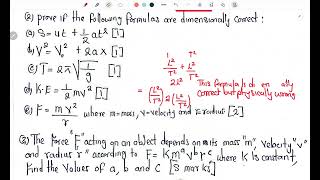 ② prove if the following formulas are dimensionally correct:
(a) S = ut + 1/2 at² [1]
(b) V² = V₀² + 2ax [1]
(c) T = 2π√(l/g) [1]
(d) K·E = 1/2 mv² [1]
(e) F = mv²/r where m=mass, v=velocity and r=radius [2]
L²/T² = L²/T² + L²/T²
2L²/T²
[L²/T²] = 2[L²/T²]
This formula is ally
correct but physically wrong
③ The force "F" acting on an object depends on its mass "m", velocity "v"
and radius "r" according to F = K mᵃ vᵇ rᶜ where K is constant,
find the values of a, b and c [3 marks]